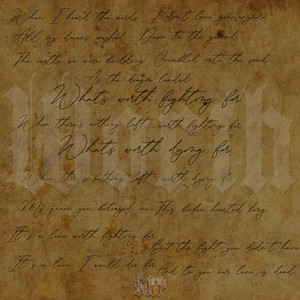 When I heard the words I don't love you anymore
All my dreams crashed Down to the ground
The castle we were building Crumbled into the sand
As the dragon landed
Whats worth fighting for
When there's nothing left worth fighting for
Whats worth dying for
When there's nothing left worth dying for
My queen you betrayed me This broken hearted king
It's a love worth fighting for
But the fight you didn't have
It's a love I would die for
And to you our love is dead